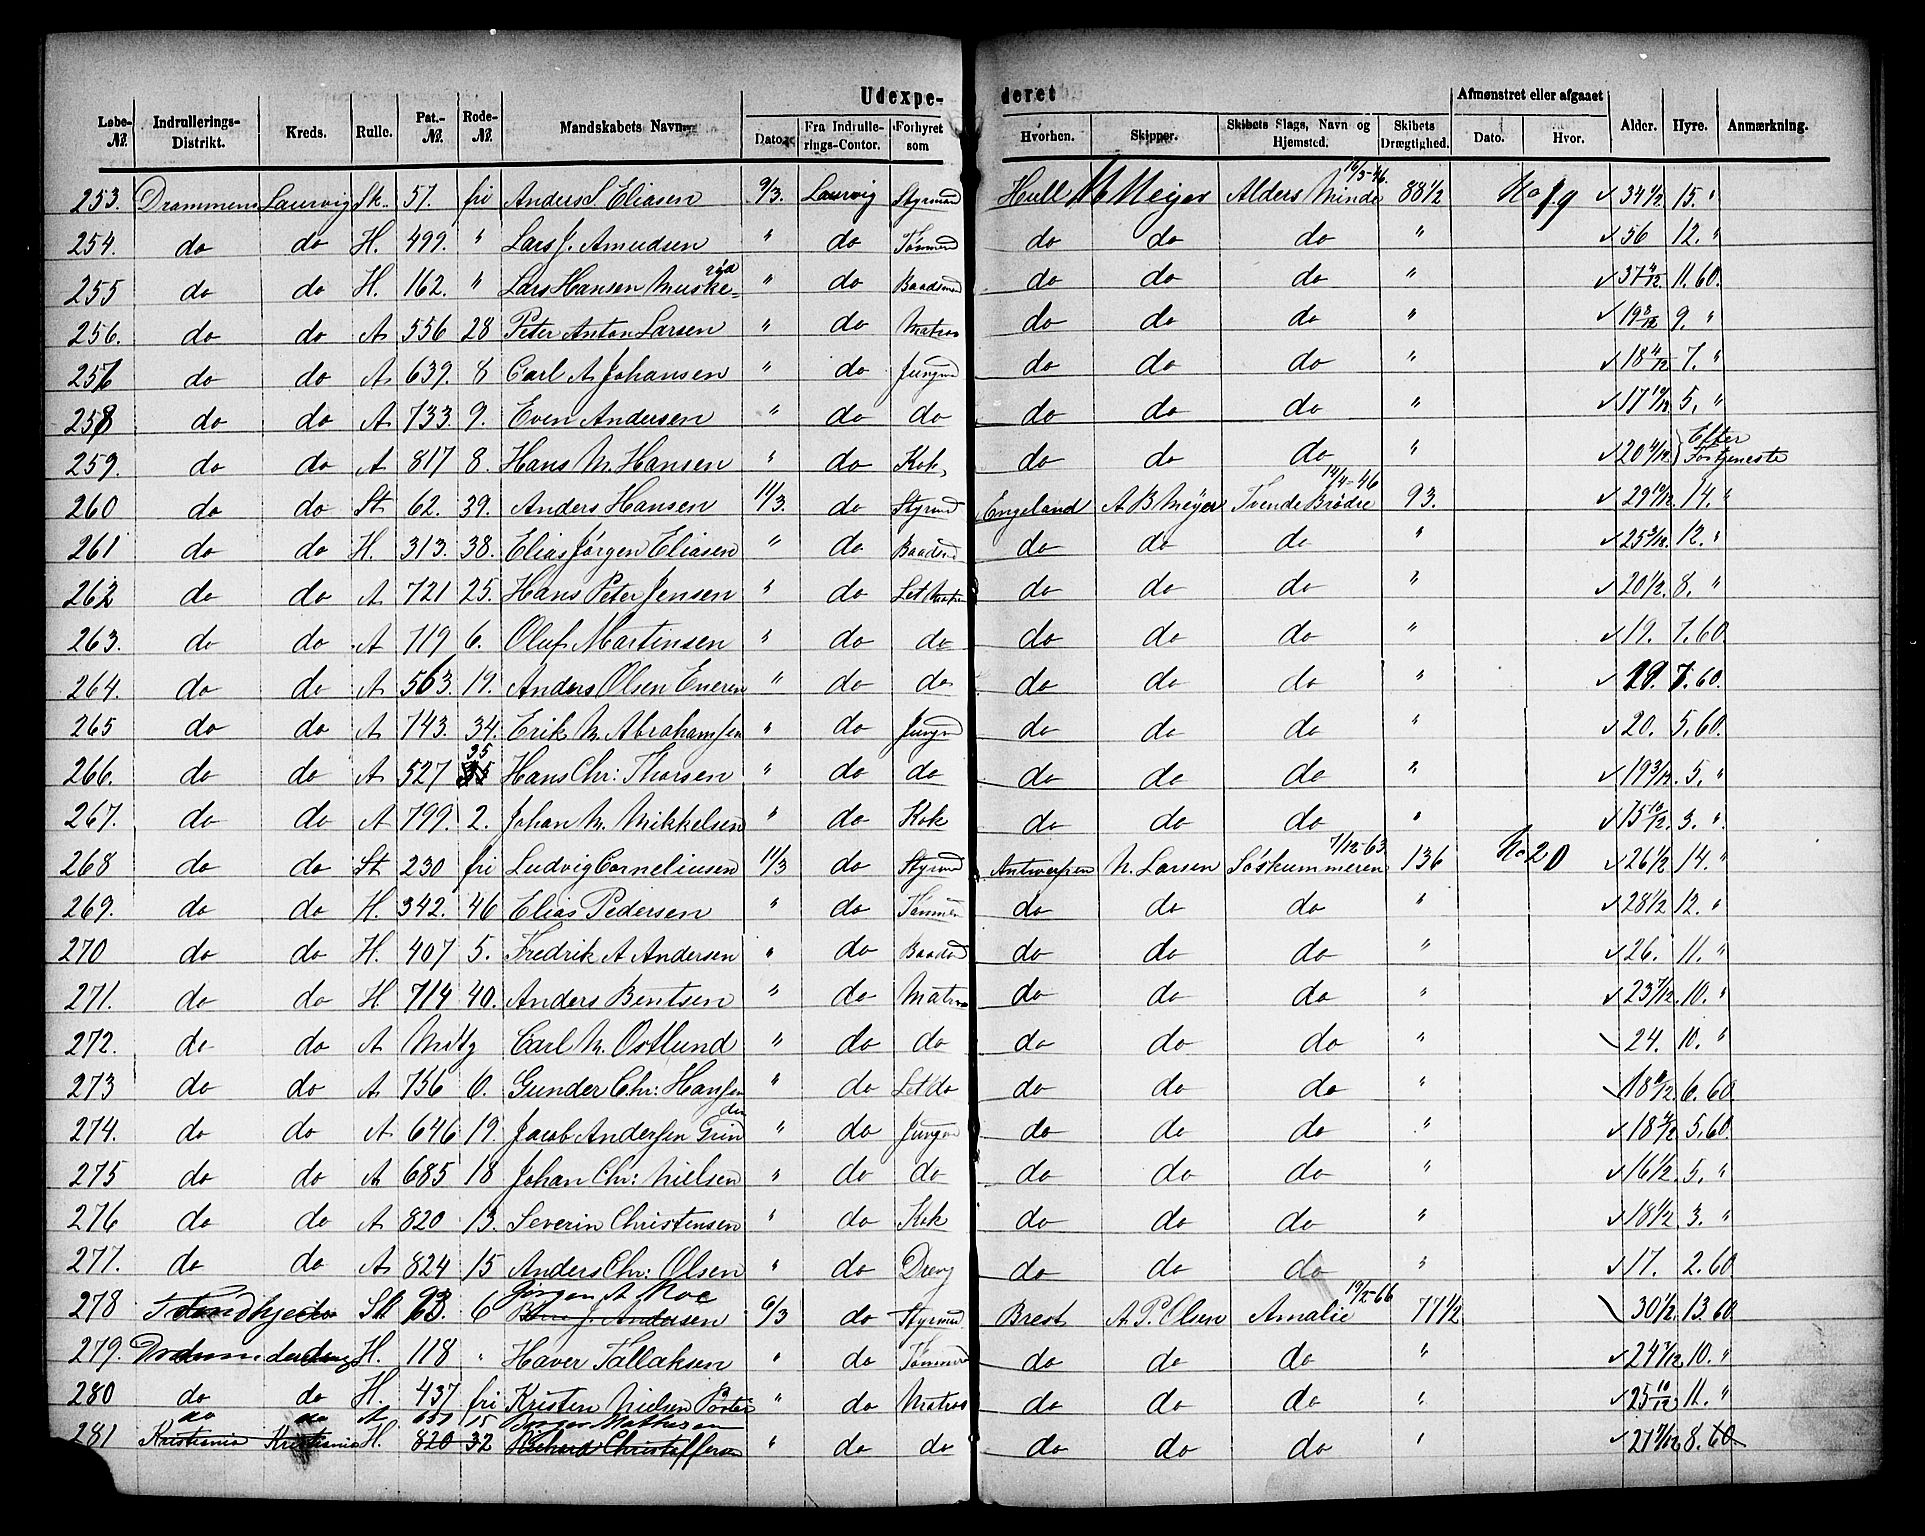 Udexpederet
Løbe-№. Indrullerings-Distrikt. Kreds. Rulle. Pat.-№. Rode-№. Mandskabets Navn. Dato. Fra Indrullerings-Contor. Forhyret som Hvorhen. Skipper. Skibets Slags, Navn og Hjemsted. Skibets Drægtighed. Afmønstret eller afgaaet Dato. Hvor. Alder. Hyre. Anmærkning.
253. Drammens Laurvig Sk. 57. fri Anders S Eliasen 9/3. Laurvig Styrmand Hull Meyer Alders Minde 16/3-46. 88 1/2 No 19 34 1/2 15. "
254. do do H. 499. " Lars J. Amudsen " do Tømmerd do do do " 56 12. "
255 do do H. 162. " Lars Hansen Muskerød " do Baadsmd do do do " 37 11. 60.
256. do do A 556 28 Peter Anton Larsen " do Matros do do do " 19 8/12 9. "
257 do do A 639. 8 Carl A Johansen " do Jungmd do do do " 18 7. "
258 do do A 733. 9. Even Andersen " do do do do do " 17 10/12 5. "
259. do do A 817 8. Hans M. Hansen " do Kok do do do " 20 Efter Fortjeneste
260 do do St 62. 39. Anders Hansen 11/3. do Styrmd Engeland A B Meyer Tvende Brødre 14/4-46 93. 29 10/12 14. "
261 do do H. 313. 38. Elias Jørgen Eliasen " do Baadsmd do do do " 25 12. "
262 do do A 721 25. Hans Peter Jensen " do Let Matr do do do " 20 1/2. 8. "
263. do do A 719 6. Oluf Martinsen " do do do do do " 19. 7. 60
264. do do A 563. 19. Anders Olsen Eneren " do do do do do " 19. 7. 60.
265 do do A 743. 34. Erik M. Abrahamsen " do Jungmd do do do " 20. 5. 60.
266. do do A 527 35 Hans Chr: Thorsen " do do do do do " 19 3/12. 5. "
267. do do A 799. 2. Johan M. Mikkelsen " do Kok do do do " 15 10/12. 3. "
268 do do St 230 fri Ludvig Corneliusen 11/3 do Styrmd Antwerpen N. Larsen Søskummeren 7/12-63 136 No 20 26 1/2 14. "
269. do do H. 342. 46 Elias Pedersen " do Tømmer do do do " 28 1/2 12. "
270 do do H. 407 5. Fredrik A Andersen " do Baadsd do do do " 26. 11. "
271. do do H 714 40. Anders Bentsen " do Matros do do do " 23 7/12. 10. "
272. do do A Carl M. Ostlund " do do do do do " 24. 10. "
273 do do A 756 6. Gunder Chr: Hansen " do Let do do do do " 18 6. 60
274. do do A 646 19. Jacob Andersen Grinden " do Jungm do do do " 18 5. 60.
275 do do A 685 18 Johan Chr: Nielsen " do do do do do " 16 1/2. 5. "
276 do do A 820 13. Severin Christensen " do Kok do do do " 18 1/2 3. "
277. do do A 824 15 Anders Chr: Olsen " do Dreng do do do " 17. 2. 60
278 Sk 6 Jørgen A Moe J. Andersen 6/3 do Styrmd Brest A. P. Olsen Amalie 19/2-66 77 1/2 30 1/2. 13. 60
279. H. 118 " Haver Tallaksen " do Tømmerd do do do " 24 7/12. 10. "
280 do do H. 437 fri Kristen Nielsen " do Matros do do do " 25 10/12 11. "
do do A 15 Mathisen
281 Kristiania Kristiania H. 820 32 Christoffersen " do do do do do " 21 7/12 8. 60